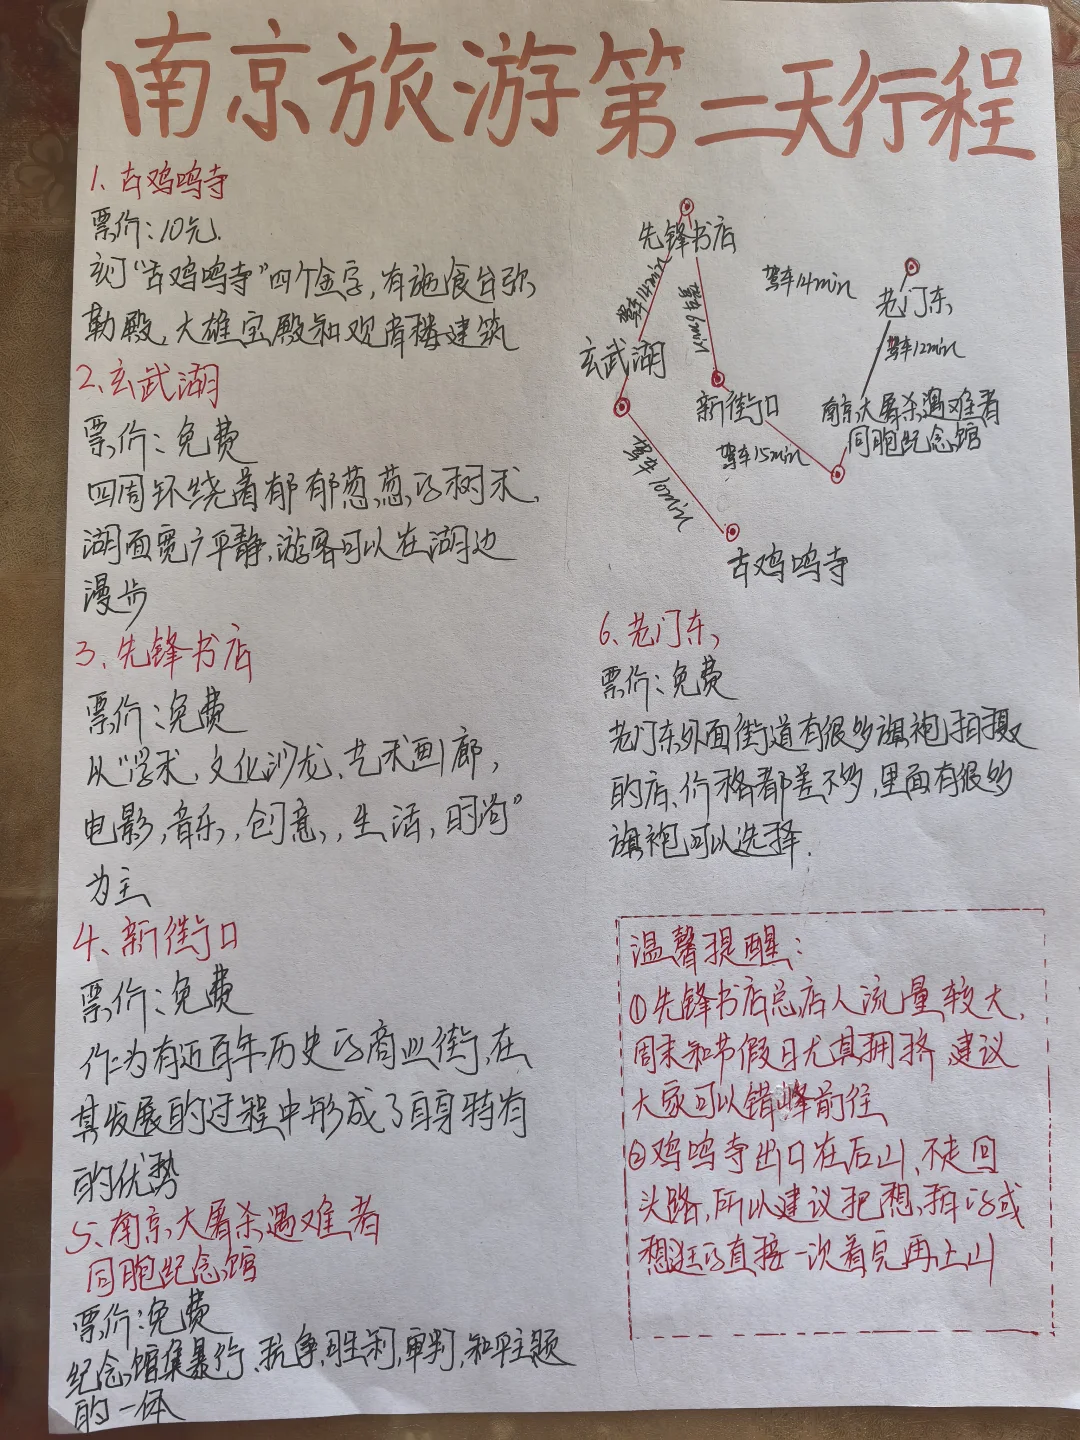 南京旅游第二天行程
1、古鸡鸣寺
票价:10元.
刻"古鸡鸣寺"四个金字,有施食台弥
勒殿,大雄宝殿和观音楼建筑
2、玄武湖
票价:免费
四周环绕着郁郁葱葱的树木,
湖面宽广平静,游客可以在湖边
漫步
3、先锋书店
票价:免费
以"学术,文化沙龙、艺术画廊,
电影,音乐,创意,生活,时尚"
为主
4、新街口
票价:免费
作为有近百年历史的商业街,在
其发展的过程中形成了自身特有
的优势
5、南京大屠杀遇难者
同胞纪念馆
票价:免费
纪念馆集暴行、抗争,胜利,审判,和平主题
的一体
先锋书店
驾车14min
老门东
驾车6min
驾车12min
玄武湖
新街口
南京大屠杀遇难者
同胞纪念馆
驾车15min
驾车10min
古鸡鸣寺
6、老门东
票价:免费
老门东外面街道有很多旗袍拍摄
的店、价格都差不多,里面有很多
旗袍可以选择.
温馨提醒:
①先锋书店总店人流量较大,
周末和节假日尤其拥挤,建议
大家可以错峰前往
②鸡鸣寺出口在后山、不走回
头路,所以建议把想拜的或
想逛的直接一次着完再上山